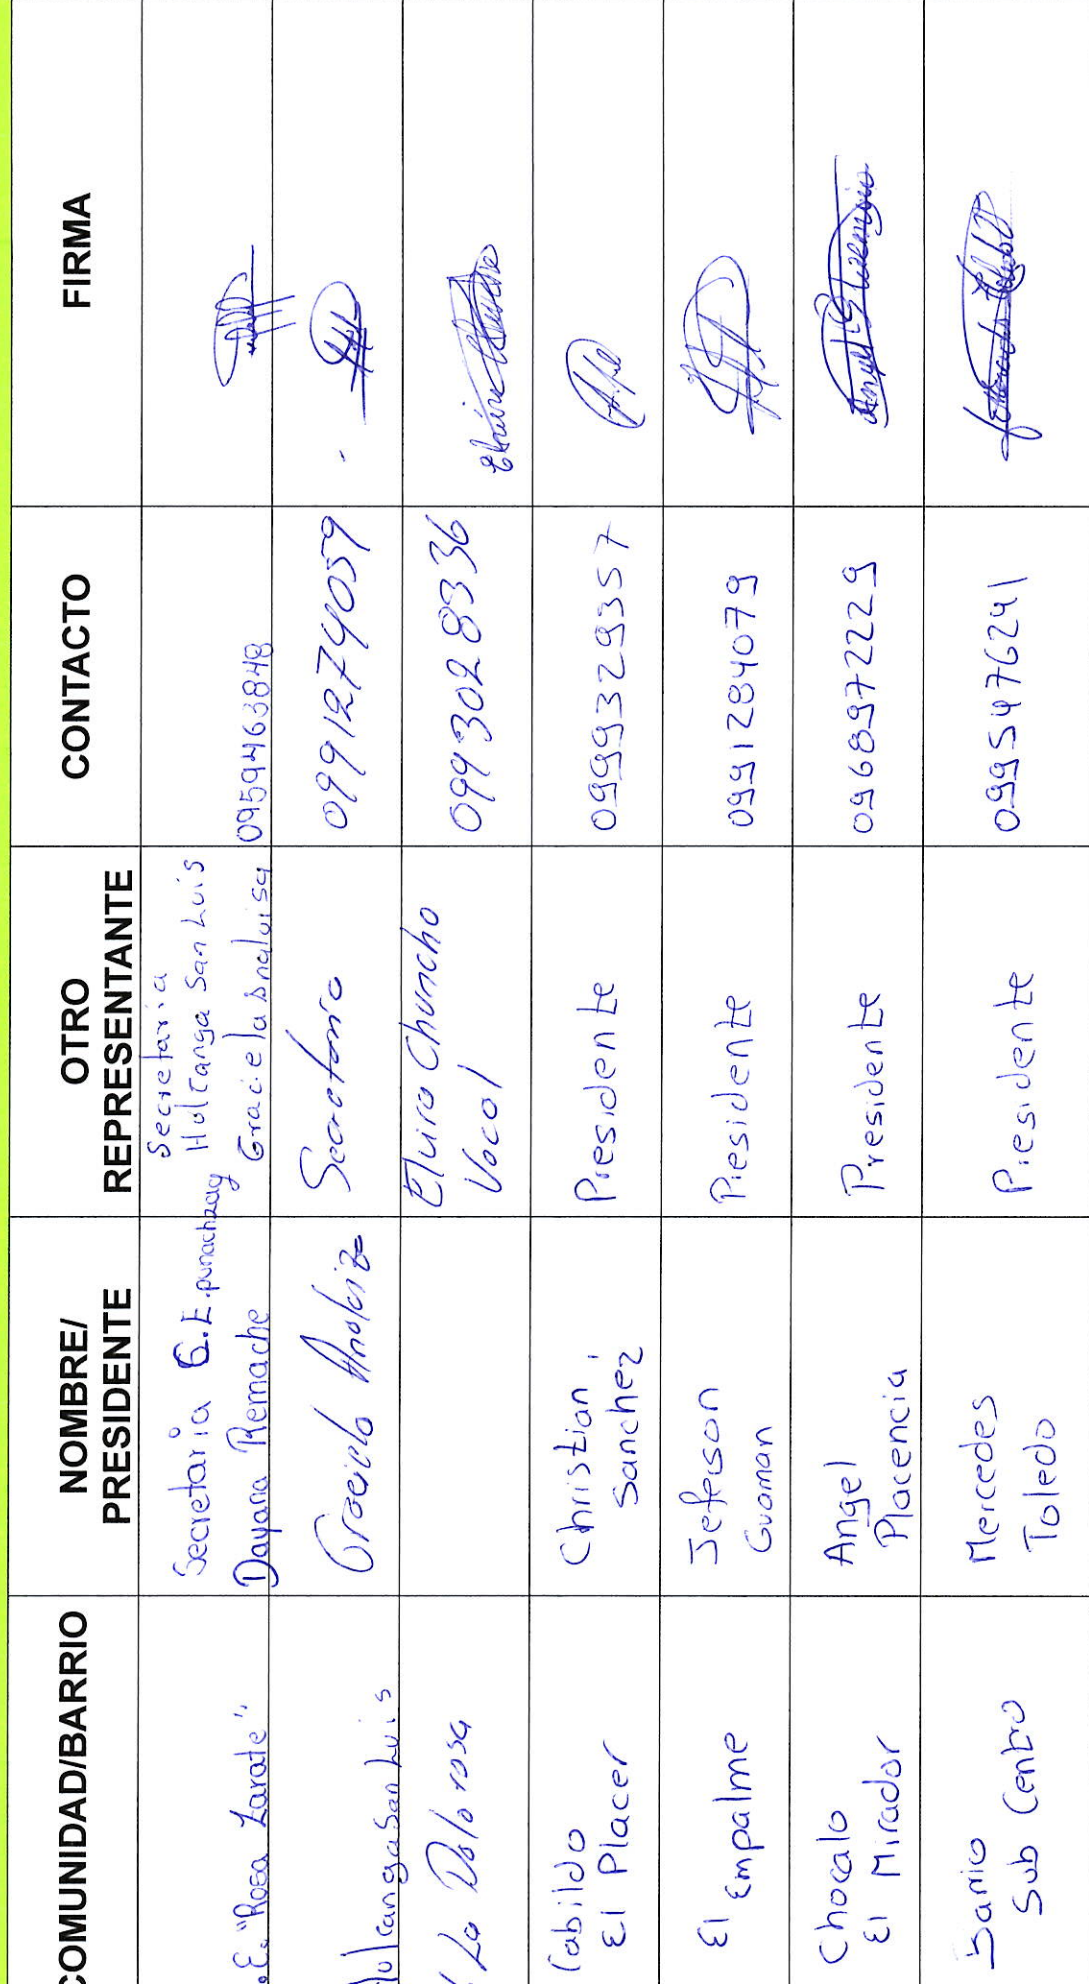 COMUNIDAD/BARRIO
NOMBRE/
PRESIDENTE
OTRO
REPRESENTANTE
CONTACTO
FIRMA
.E. "Rosa Zarate".
Secretaria G.E. punachzag
Dayana Remache
Secretaria
Hulcanga San Luis
Graciela Analuisa
0959463848
Hulcanga San Luis
Graciela Analuiza
Secretaria
0991274059
La Dolorosa
Elvira Chuncho
Vocal
0993028336
Cabildo
El Placer
Christian
Sanchez
Presidente
0999329357
El Empalme
Jeferson
Guaman
Presidente
0991284079
Chocalo
El Mirador
Angel
Placencia
Presidente
0968972229
Barrio
Sub Centro
Mercedes
Toledo
Presidente
0995476241